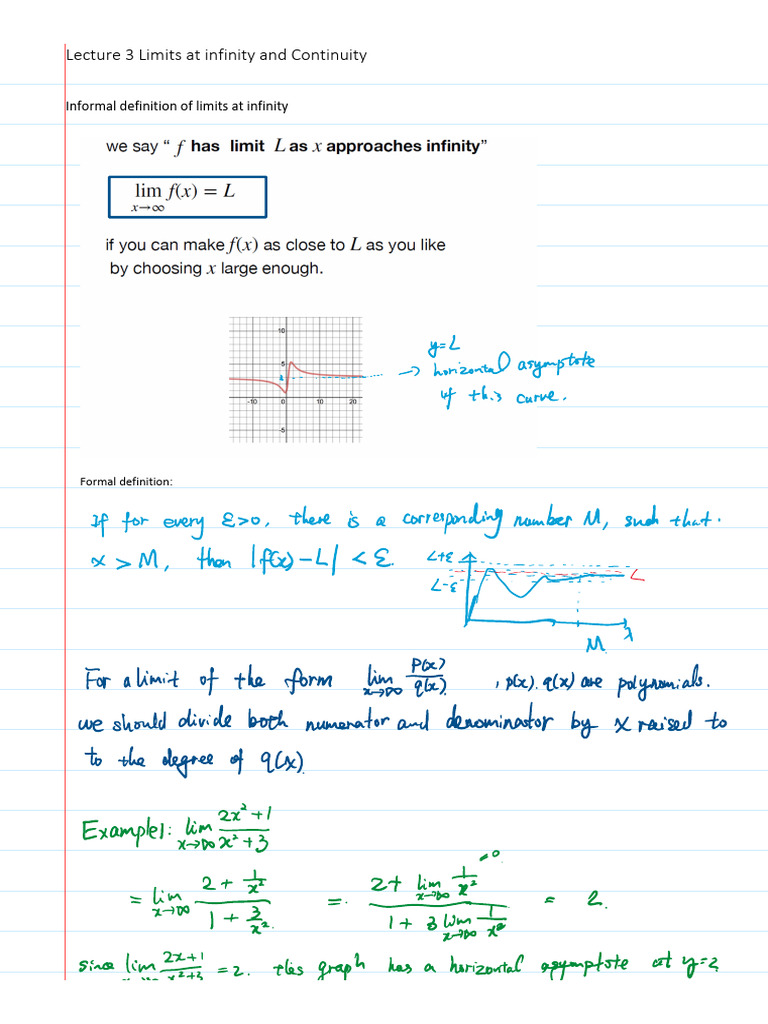 Lecture 3 Limits at infinity and Continuity
Informal definition of limits at infinity
we say “ f has limit L as x approaches infinity”
lim f(x) = L
x→∞
if you can make f(x) as close to L as you like
by choosing x large enough.
10
5
2
-10 0 10 20
-5
y=L
→ horizontal asymptote
of this curve.
Formal definition:
If for every ε>0, there is a corresponding number M, such that.
x > M, then |f(x)-L| < ε.
L+ε
L
L-ε
M x
For a limit of the form lim x→∞ p(x)/q(x), p(x). q(x) are polynomials.
we should divide both numerator and denominator by x raised to
to the degree of q(x).
Example1: lim x→∞ (2x²+1)/(x²+3)
= lim x→∞ (2 + 1/x²)/(1 + 3/x²) = (2 + lim x→∞ 1/x²)/(1 + 3 lim x→∞ 1/x²) = 2.
=0
since lim x→∞ (2x+1)/(x²+3) = 2. this graph has a horizontal asymptote at y=2